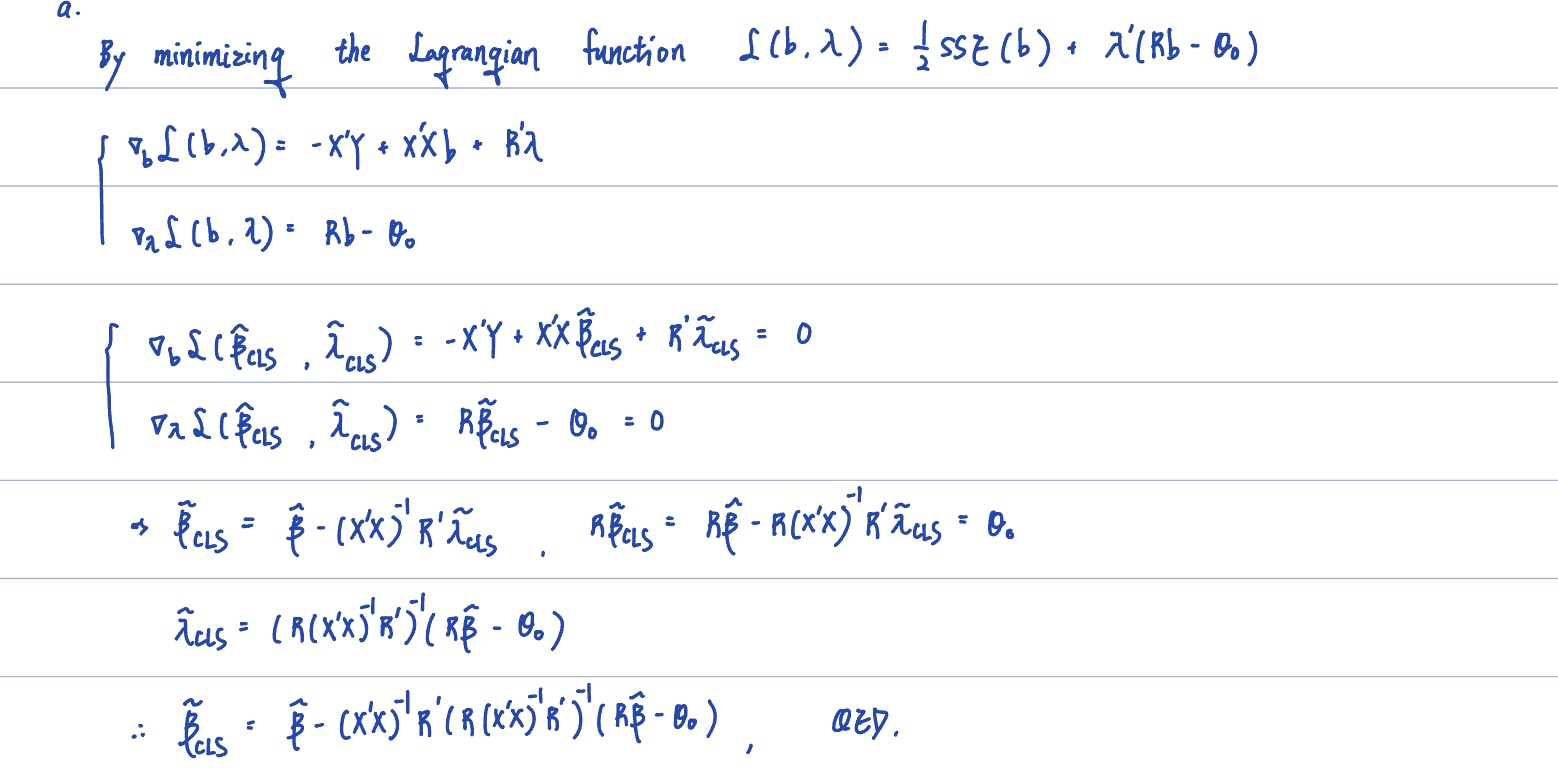 a.
By minimizing the Lagrangian function ℒ(b, λ) = ½ SSE(b) + λ'(Rb - θ₀)
∇_b ℒ(b, λ) = -X'Y + X'Xb + R'λ
∇_λ ℒ(b, λ) = Rb - θ₀
∇_b ℒ(β̂_CLS, λ̃_CLS) = -X'Y + X'Xβ̃_CLS + R'λ̃_CLS = 0
∇_λ ℒ(β̂_CLS, λ̃_CLS) = Rβ̃_CLS - θ₀ = 0
⇒ β̃_CLS = β̂ - (X'X)⁻¹R'λ̃_CLS , Rβ̃_CLS = Rβ̂ - R(X'X)⁻¹R'λ̃_CLS = θ₀
λ̃_CLS = (R(X'X)⁻¹R')⁻¹(Rβ̂ - θ₀)
∴ β̃_CLS = β̂ - (X'X)⁻¹R'(R(X'X)⁻¹R')⁻¹(Rβ̂ - θ₀) , QED.